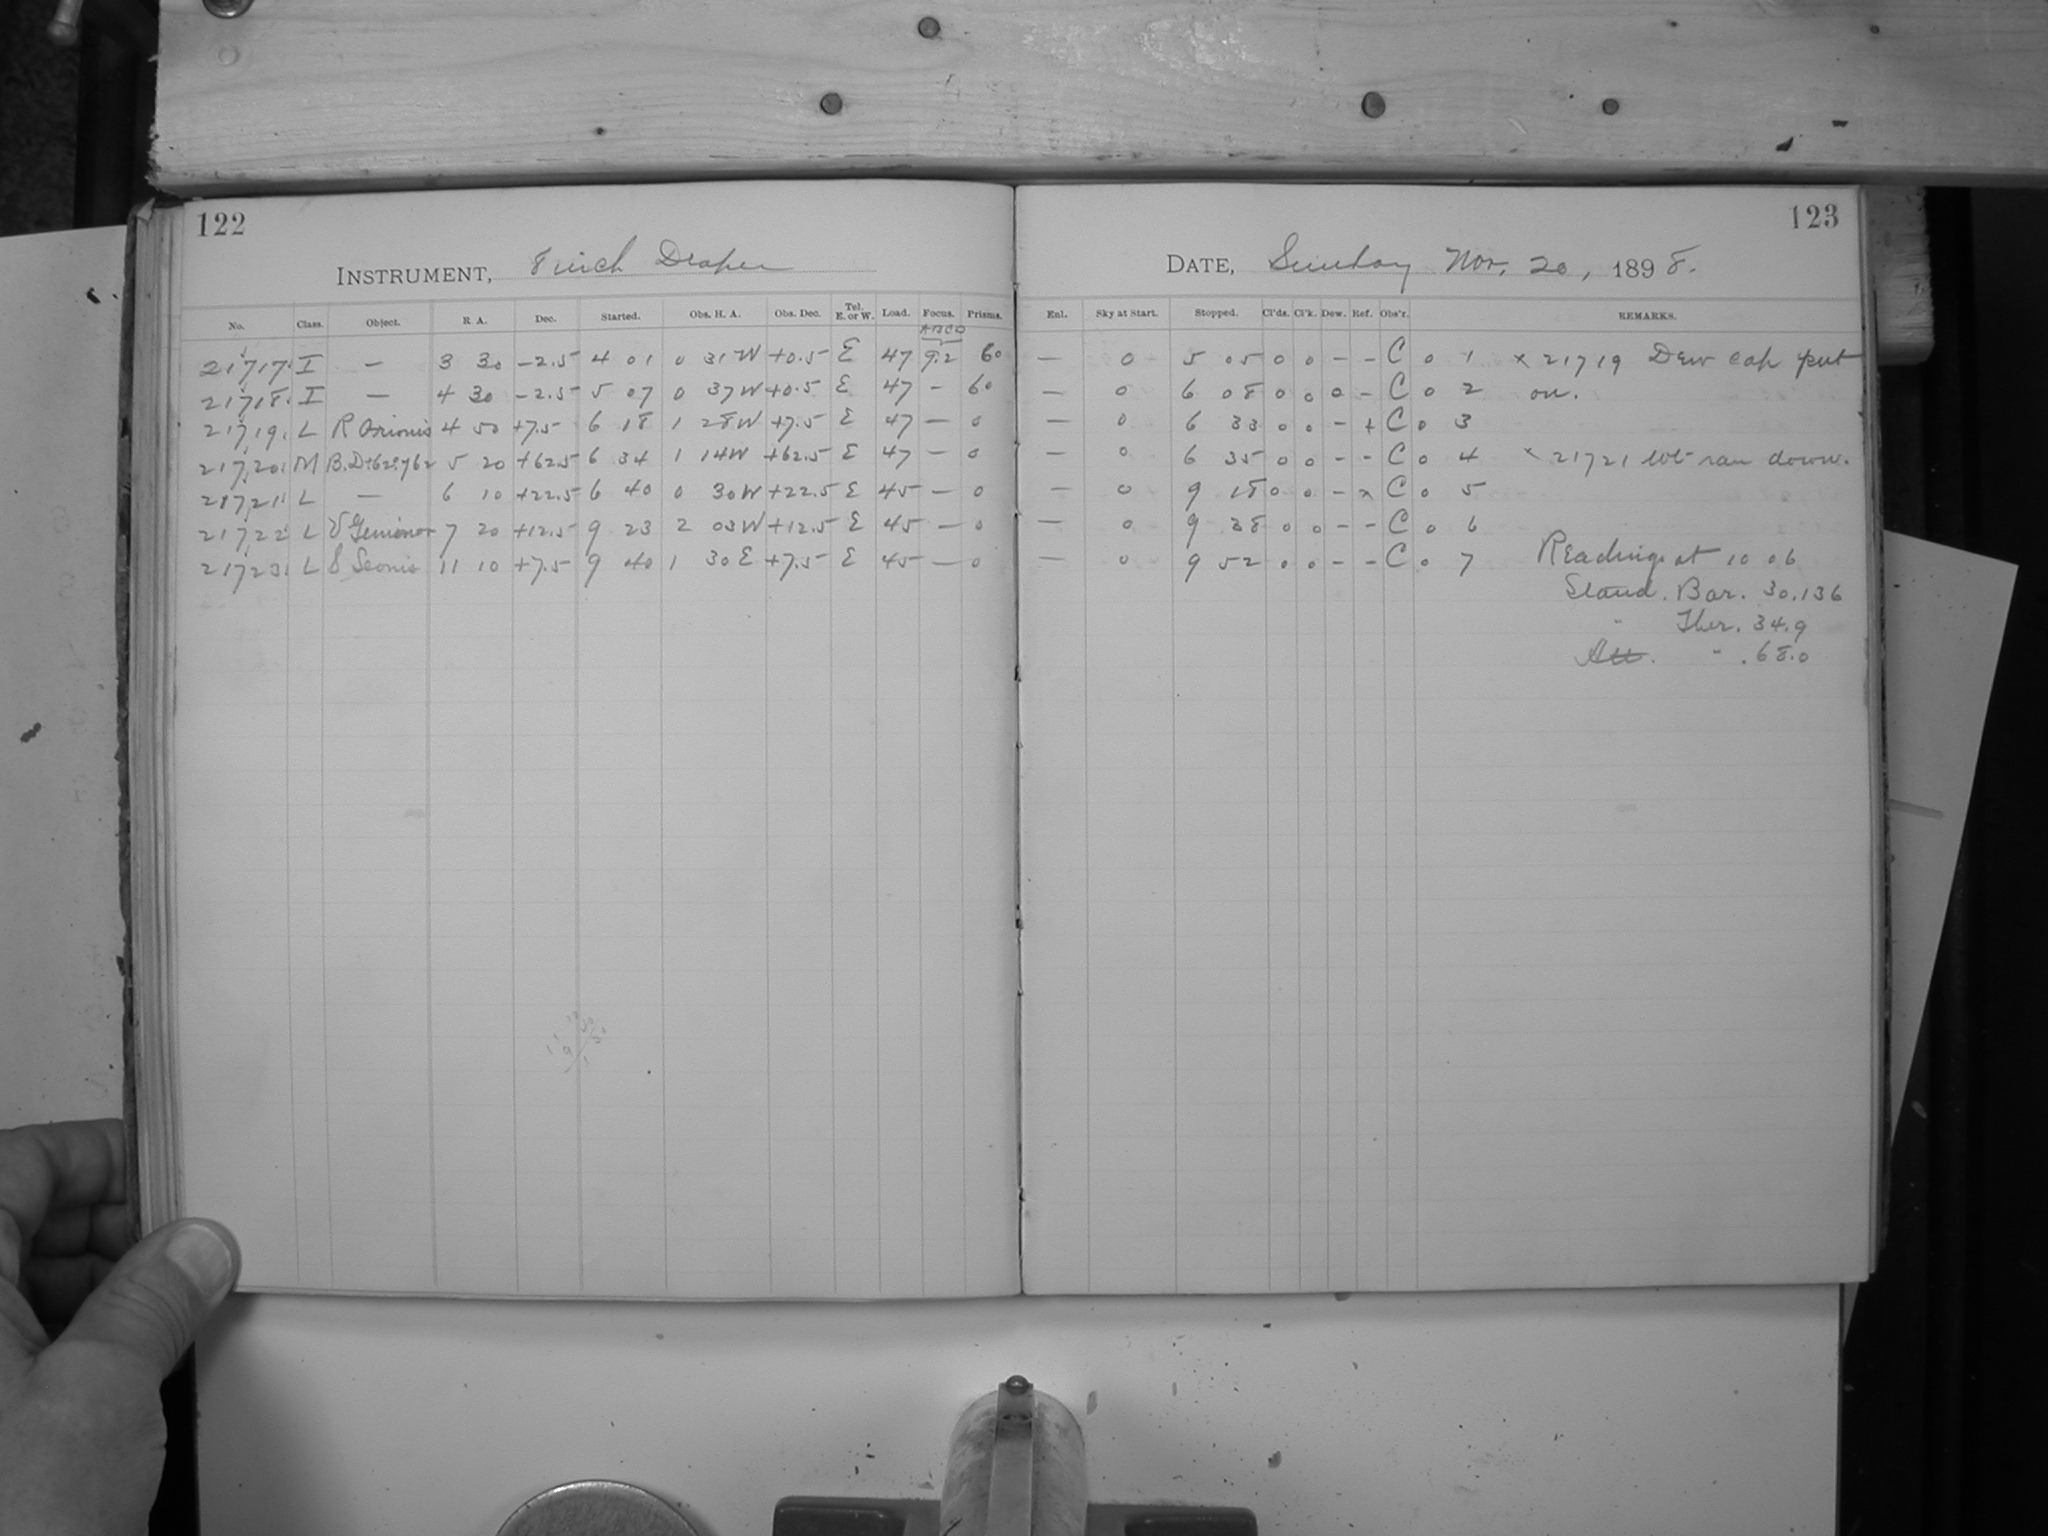 122
INSTRUMENT, 8 inch Draper
No. Class. Object. R. A. Dec. Started. Obs. H. A. Obs. Dec. Tel. E. or W. Load. Focus. Prisms.
ABCD
21717. I — 3 30 -2.5 4 01 0 31 W +0.5 E 47 9.2 60
21718. I — 4 30 -2.5 5 07 0 37 W +0.5 E 47 - 60
21719. L R Orionis 4 50 +7.5 6 18 1 28 W +7.5 E 47 — 0
21720. M B.D+62°762 5 20 +62.5 6 34 1 14 W +62.5 E 47 — 0
21721. L — 6 10 +22.5 6 40 0 30 W +22.5 E 45 — 0
21722. L V Geminor 7 20 +12.5 9 23 2 03 W +12.5 E 45 — 0
21723. L S Leonis 11 10 +7.5 9 40 1 30 E +7.5 E 45 — 0
123
DATE, Sunday Nov. 20, 1898.
Enl. Sky at Start. Stopped. Cl'ds. Cl'k. Dew. Ref. Obs'r. REMARKS.
— 0 5 05 0 0 - - C 0 1 x 21719 Dew cap put
— 0 6 08 0 0 0 - C 0 2 on.
— 0 6 33 0 0 - + C 0 3
— 0 6 35 0 0 - - C 0 4 x 21721 wt ran down.
— 0 9 18 0 0 - x C 0 5
— 0 9 38 0 0 - - C 0 6
— 0 9 52 0 0 - - C 0 7 Readings at 10 06
Stand. Bar. 30.136
" Ther. 34.9
Att. " . 68.0